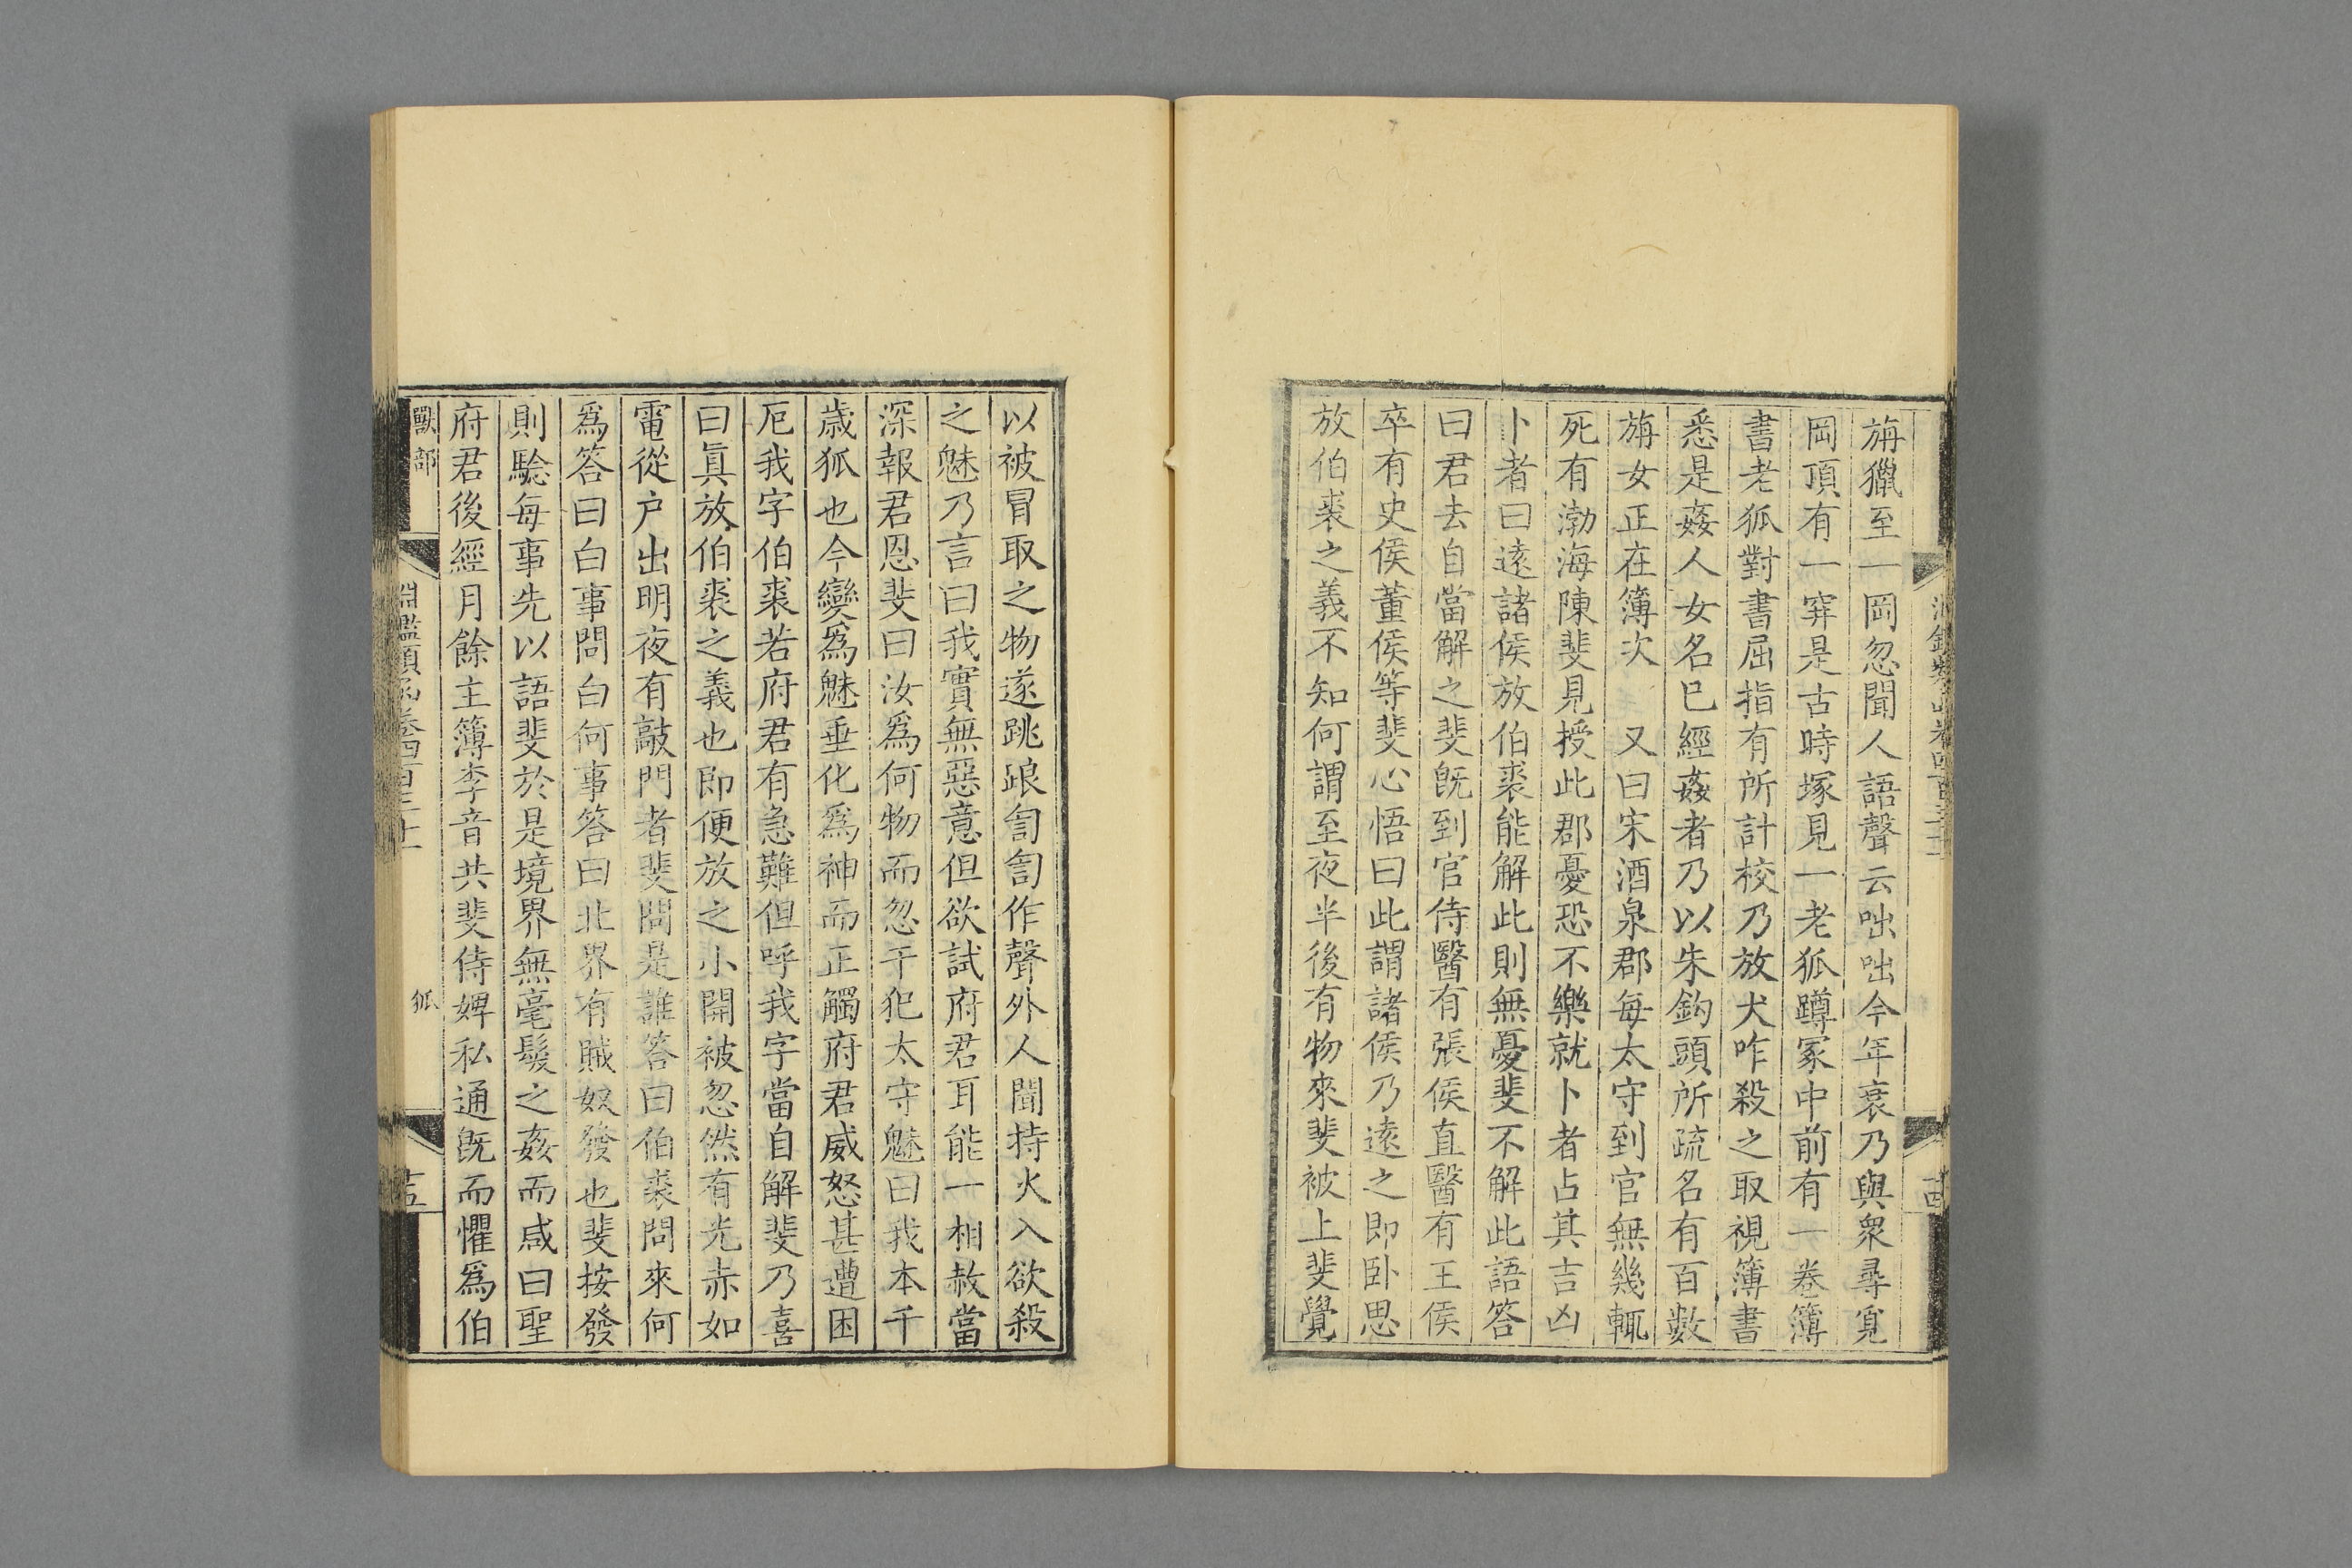 旃獵至一岡忽聞人語聲云咄咄今年衰乃與衆尋覓
岡頂有一穽是古時塚見一老狐蹲冢中前有一卷簿
書老狐對書屈指有所計校乃放犬咋殺之取視簿書
悉是姦人女名已經姦者乃以朱鈎頭所疏名有百數
旃女正在簿次　又曰宋酒泉郡每太守到官無幾輒
死有渤海陳斐見授此郡憂恐不樂就卜者占其吉凶
卜者曰遠諸侯放伯裘能解此則無憂斐不解此語答
曰君去自當解之斐旣到官侍醫有張侯直醫有王侯
卒有史侯董侯等斐心悟曰此謂諸侯乃遠之即卧思
放伯裘之義不知何謂至夜半後有物來斐被上斐覺
十四
以被冒取之物遂跳踉訇訇作聲外人聞持火入欲殺
之魅乃言曰我實無惡意但欲試府君耳能一相赦當
深報君恩斐曰汝爲何物而忽干犯太守魅曰我本千
歳狐也今變爲魅垂化爲神而正觸府君威怒甚遭困
厄我字伯裘若府君有急難但呼我字當自解斐乃喜
曰眞放伯裘之義也即便放之小開被忽然有光赤如
電從户出明夜有敲門者斐問是誰答曰伯裘問來何
爲答曰白事問白何事答曰北界有賊奴發也斐按發
則驗每事先以語斐於是境界無毫髮之姦而咸曰聖
府君後經月餘主簿李音共斐侍婢私通旣而懼爲伯
獸部
淵鑑類函卷四百三十一
狐
十五